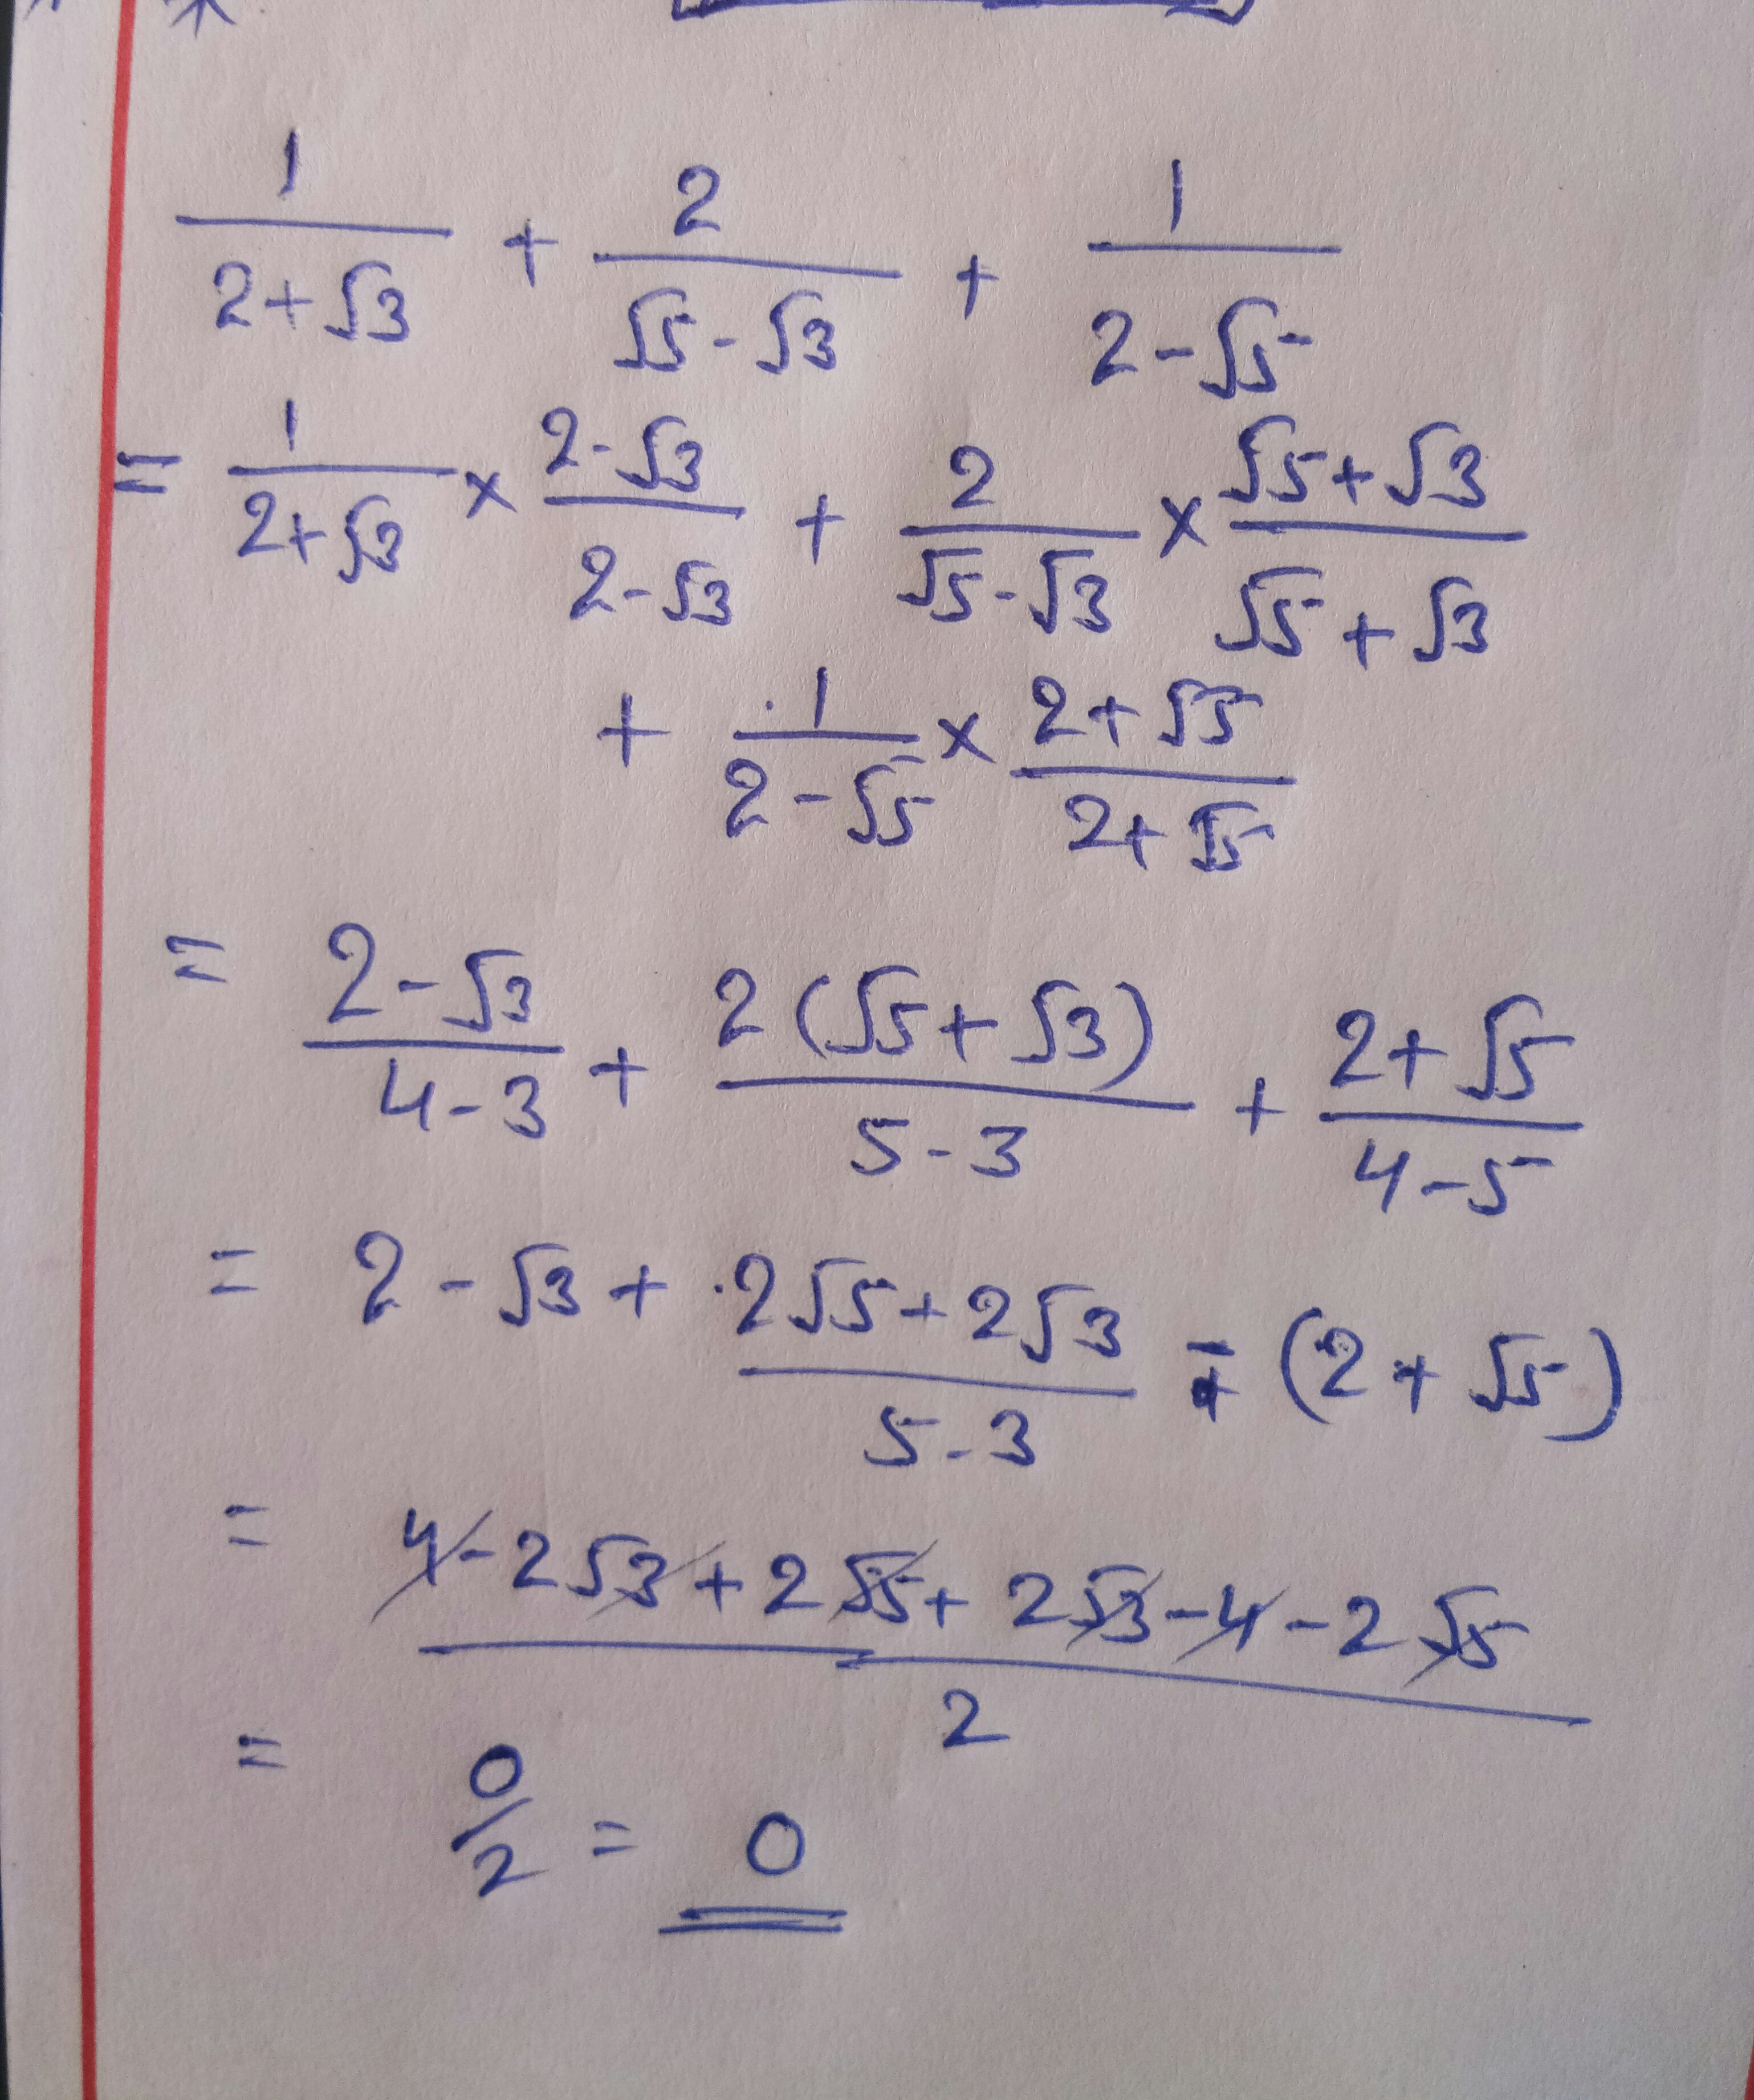 1/(2+√3) + 2/(√5-√3) + 1/(2-√5)
= 1/(2+√3) × (2-√3)/(2-√3) + 2/(√5-√3) × (√5+√3)/(√5+√3)
+ 1/(2-√5) × (2+√5)/(2+√5)
= (2-√3)/(4-3) + 2(√5+√3)/(5-3) + (2+√5)/(4-5)
= 2-√3 + (2√5+2√3)/(5-3) - (2+√5)
= (4-2√3+2√5+2√3-4-2√5)/2
= 0/2 = 0